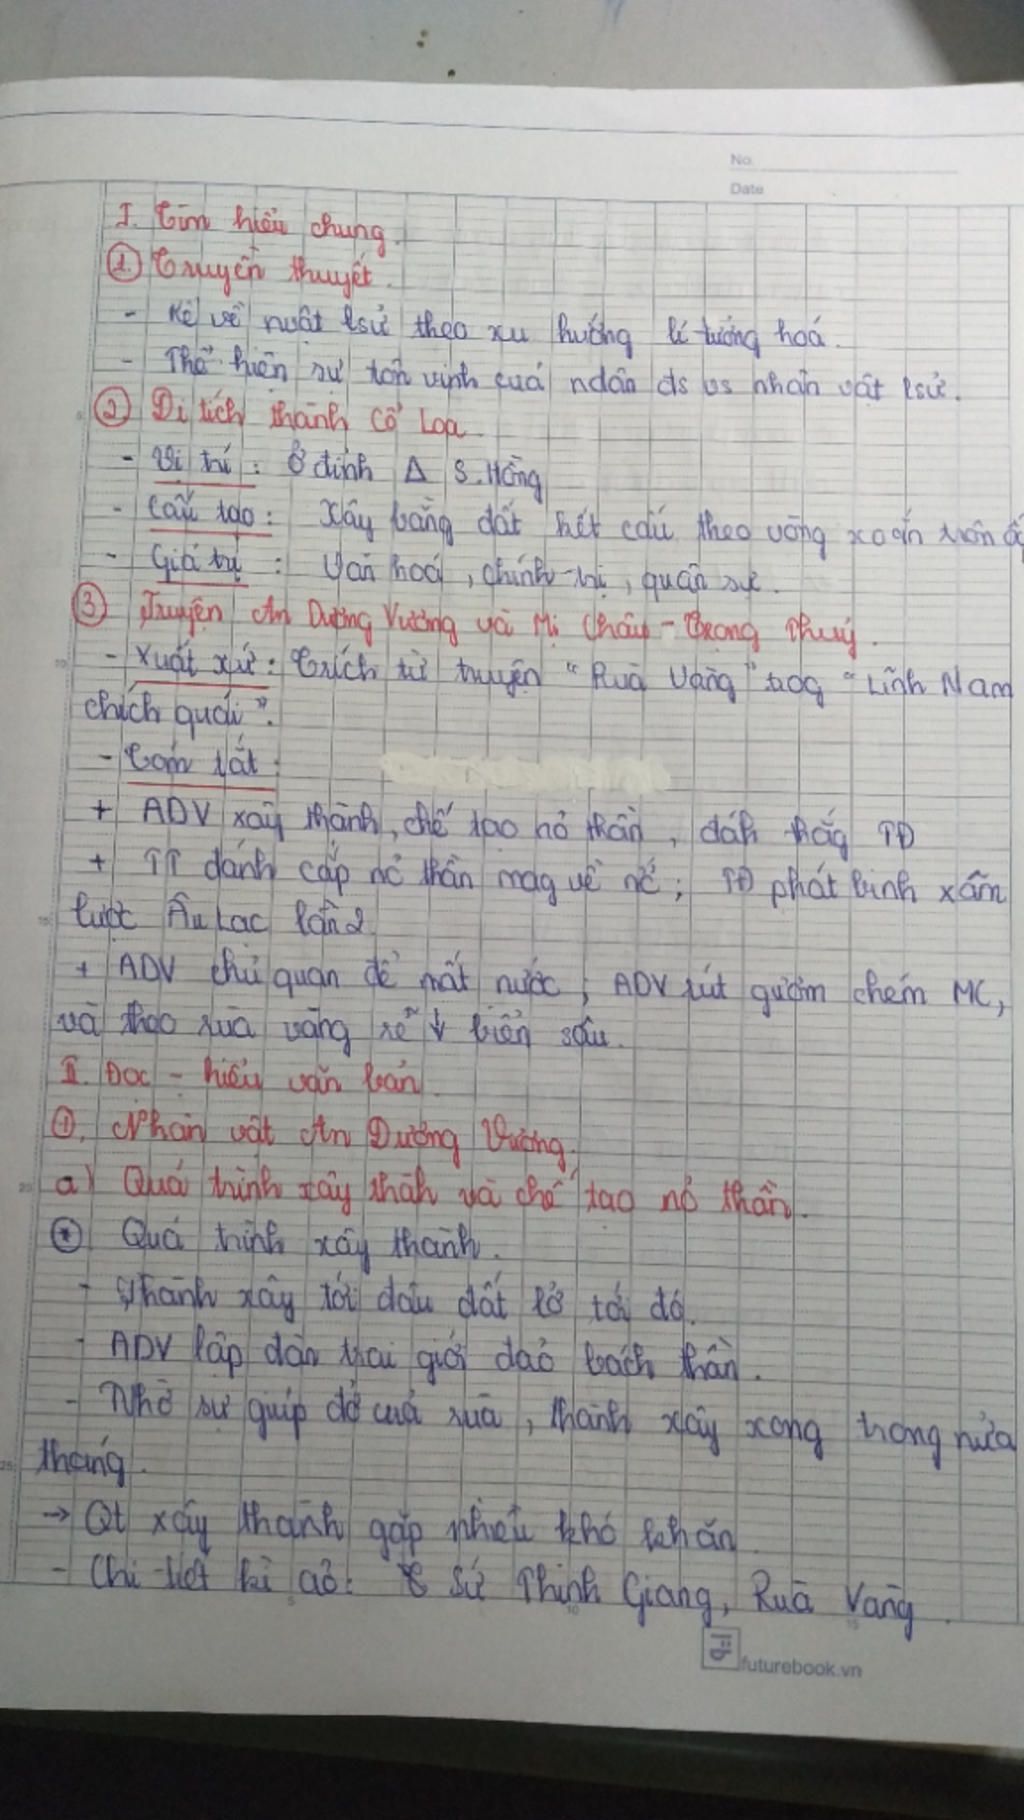 No.
Date
I. Tìm hiểu chung.
① Truyền thuyết.
- Kể về nvật lsử theo xu hướng lí tưởng hoá.
- Thể hiện sự tôn vinh của ndân đs vs nhân vật lsử.
② Di tích thành Cổ Loa
- Vị trí: Ở đỉnh Δ S.Hồng
- Cấu tạo: Xây bằng đất kết cấu theo vòng xoắn trôn ố
- Giá trị: Văn hoá, chính trị, quân sự.
③ Truyện An Dương Vương và Mị Châu - Trọng Thuỷ.
- Xuất xứ: Trích từ truyện "Rùa Vàng" trog "Lĩnh Nam
chích quái".
- Tóm tắt:
+ ADV xây thành, chế tạo nỏ thần, đáh thắg TĐ
+ TT đánh cắp nỏ thần mag về nc; TĐ phát binh xâm
lược Âu Lạc lần 2
+ ADV chủ quan để mất nước; ADV rút gươm chém MC,
và theo rùa vàng rẽ ↓ biển sâu.
II. Đọc - hiểu văn bản.
①. Nhân vật An Dương Vương.
a) Quá trình xây thành và chế tạo nỏ thần.
⊛ Quá trình xây thành.
- Thành xây tới đâu đất lở tới đó.
- ADV lập đàn trai giới đảo bách thần.
- Nhờ sự giúp đỡ của rùa, thành xây xong trong nửa
tháng.
→ Qt xây thành gặp nhiều khó khăn
- Chi tiết kì ảo: sứ Thinh Giang, Rùa Vàng.
futurebook.vn